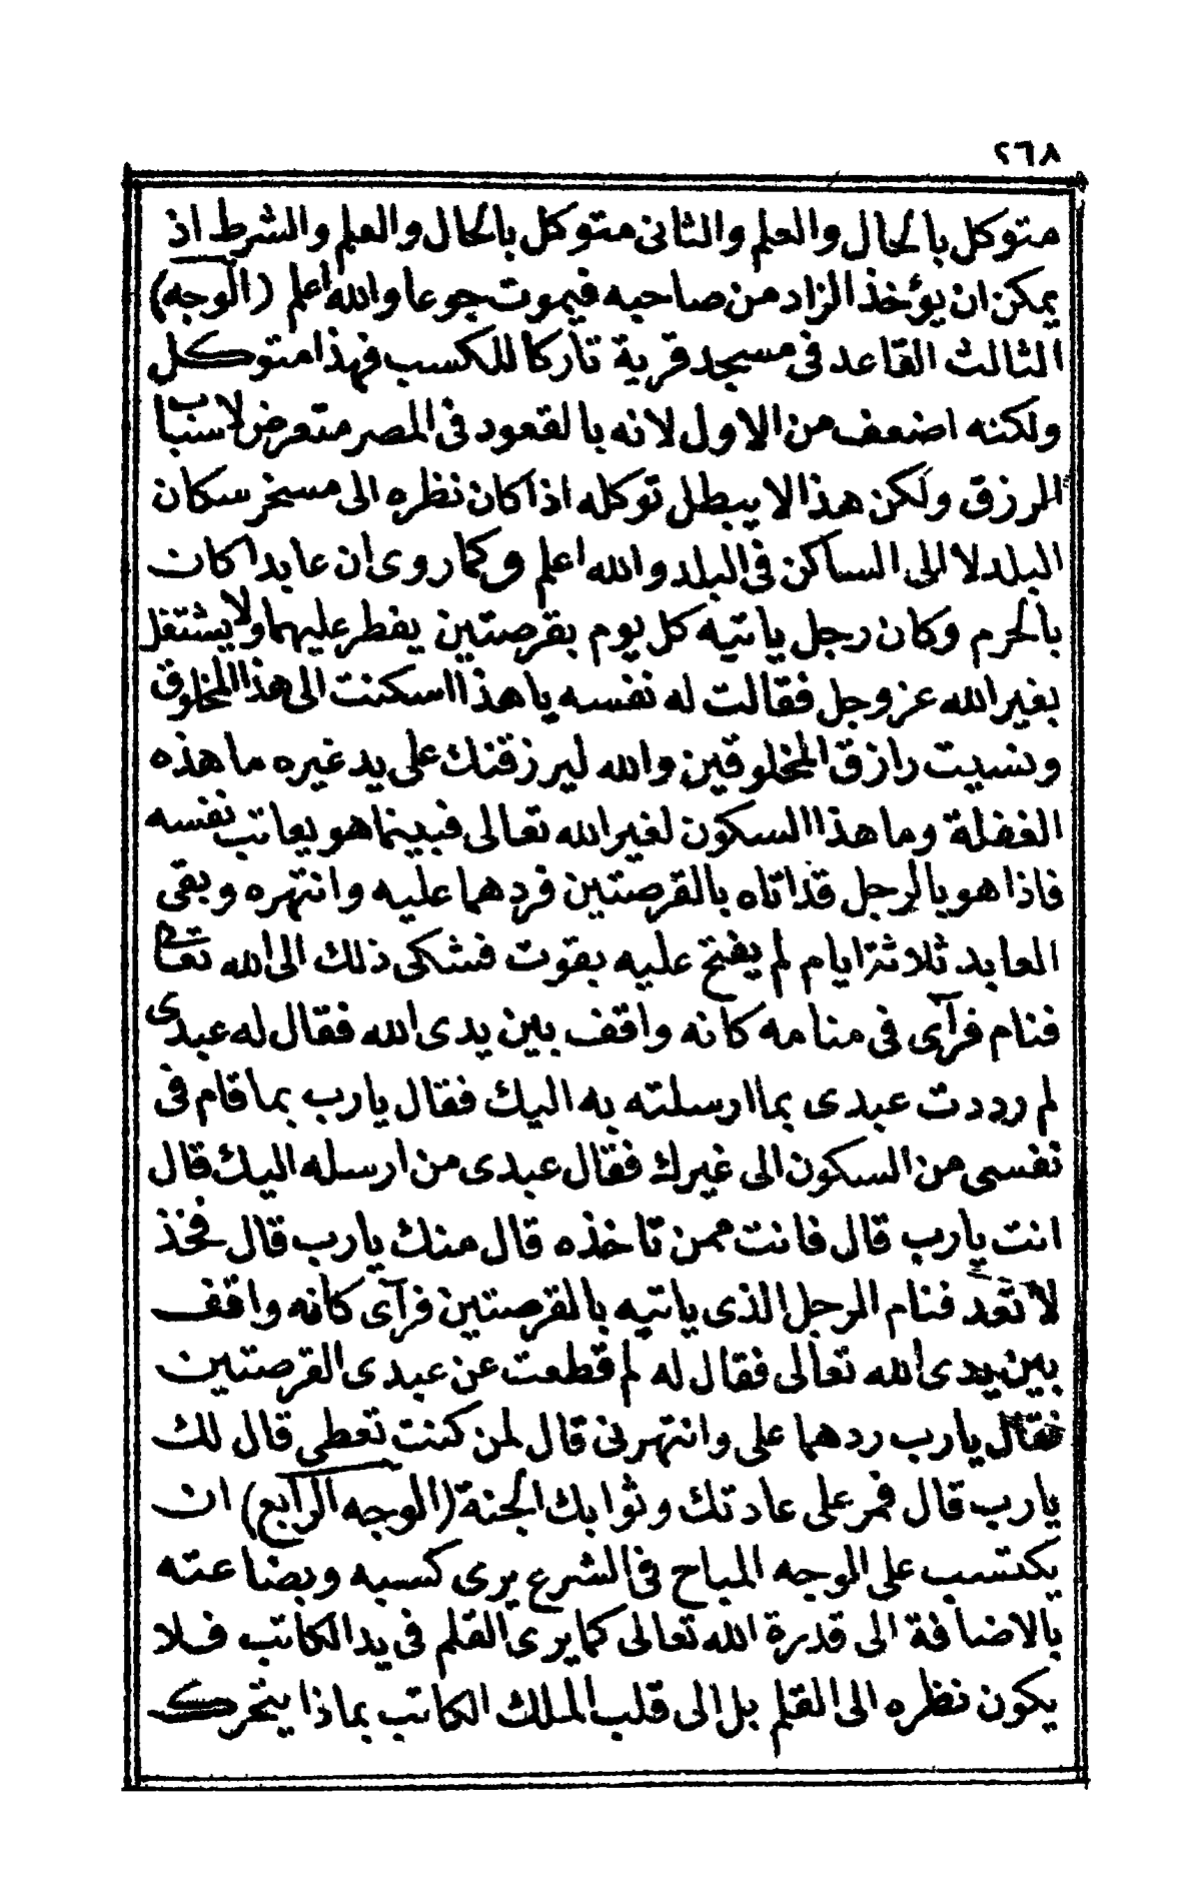 ٢٦٨
متوكل بالحال والعلم والثانى متوكل بالحال والعلم والشرط اذ
يمكن ان يؤخذ الزاد من صاحبه فيموت جوعا والله اعلم (الوجه)
الثالث القاعد فى مسجد قرية تاركا للكسب فهذا متوكل
ولكنه اضعف من الاول لانه بالقعود فى المصر متعرض لاسباب
الرزق ولكن هذا لا يبطل توكله اذا كان نظره الى مسخر سكان
البلد لا الى الساكن فى البلد والله اعلم وكما روى ان عابدا كان
بالحرم وكان رجل ياتيه كل يوم بقرصتين يفطر عليهما ولا يشتغل
بغير الله عز وجل فقالت له نفسه يا هذا اسكنت الى هذا المخلوق
ونسيت رازق المخلوقين والله ليرزقنك على يد غيره ما هذه
الغفلة وما هذا السكون لغير الله تعالى فبينما هو يعاتب نفسه
فاذا هو بالرجل قد اتاه بالقرصتين فردهما عليه وانتهره وبقى
العابد ثلاثة ايام لم يفتح عليه بقوت فشكى ذلك الى الله تعالى
فنام فرآى فى منامه كانه واقف بين يدى الله فقال له عبدى
لم رددت عبدى بما ارسلته به اليك فقال يارب بما قام فى
نفسى من السكون الى غيرك فقال عبدى من ارسله اليك قال
انت يارب قال فانت ممن تاخذه قال منك يارب قال فخذ
لا تعد فنام الرجل الذى ياتيه بالقرصتين فرآى كانه واقف
بين يدى الله تعالى فقال له لم قطعت عن عبدى القرصتين
فقال يارب ردهما على وانتهرنى قال لمن كنت تعطى قال لك
يارب قال فمر على عادتك وثوابك الجنة (الوجه الرابع) ان
يكتسب على الوجه المباح فى الشرع يرى كسبه وبضاعته
بالاضافة الى قدرة الله تعالى كما يرى القلم فى يد الكاتب فلا
يكون نظره الى القلم بل الى قلب الملك الكاتب بماذا يتحرك